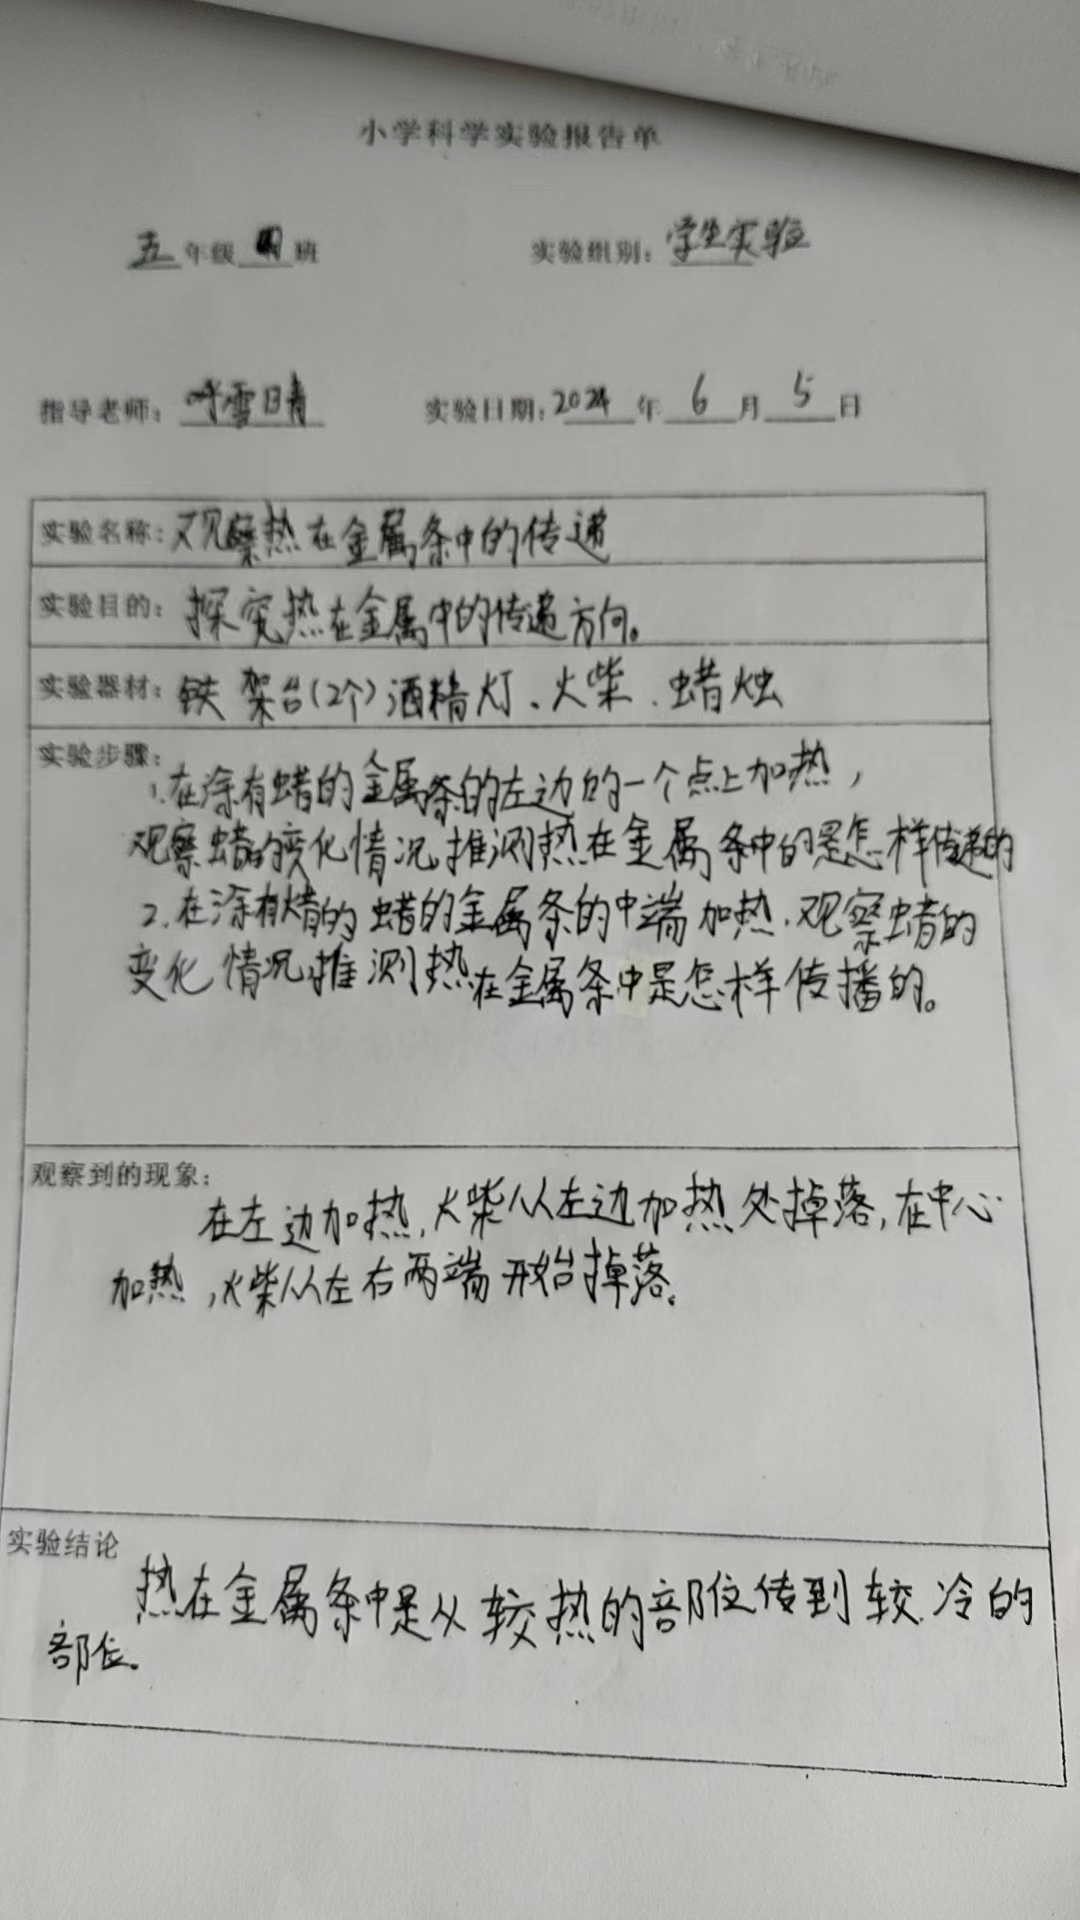 小学科学实验报告单
五年级 班 实验组别:学生实验
指导老师:呼雪晴 实验日期:2024年6月5日
实验名称:观察热在金属条中的传递
实验目的:探究热在金属中的传递方向。
实验器材:铁架台(2个)酒精灯、火柴、蜡烛
实验步骤:
1.在涂有蜡的金属条的左边的一个点上加热,
观察蜡的变化情况推测热在金属条中的是怎样传递的
2.在涂有的蜡的金属条的中端加热.观察蜡的
变化情况推测热在金属条中是怎样传播的。
观察到的现象:
在左边加热,火柴从左边加热处掉落,在中心
加热,火柴从左右两端开始掉落。
实验结论
热在金属条中是从较热的部位传到较冷的
部位。